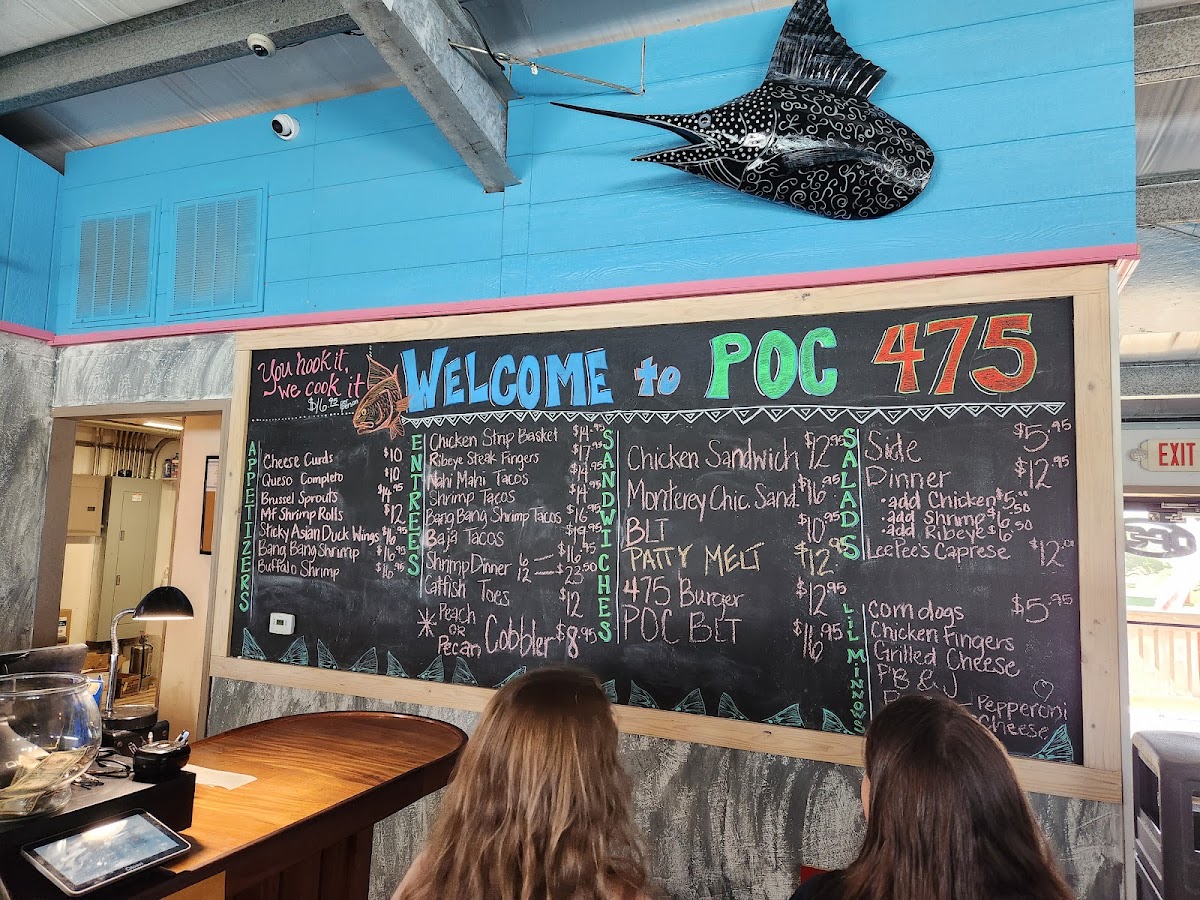 You hook it,
we cook it!
$16.95
WELCOME to POC 475
APPETIZERS
Cheese Curds $10
Queso Completo $10
Brussel Sprouts $14.95
MF Shrimp Rolls $12
Sticky Asian Duck Wings $16.95
Bang Bang Shrimp $16.95
Buffalo Shrimp $16.95
ENTREES
Chicken Strip Basket $14.95
Ribeye Steak Fingers $17.95
Mahi Mahi Tacos $14.95
Shrimp Tacos $14.95
Bang Bang Shrimp Tacos $16.95
Baja Tacos $19.95
Shrimp Dinner 6 — $16.95
12 — $23.50
Catfish Toes $12
* Peach
OR
Pecan Cobbler $8.95
SANDWICHES
Chicken Sandwich $12.95
Monterey Chic. Sand. $16.95
BLT $10.95
PATTY MELT $12.95
475 Burger $12.95
POC BLT $16.95
SALADS
Side $5.95
Dinner $12.95
• add Chicken $5.50
• add Shrimp $6.50
• add Ribeye $6.50
LeeTee's Caprese $12
LIL MINNOWS
corn dogs $5.95
Chicken Fingers
Grilled Cheese
PB & J
Pepperoni
Cheese
EXIT